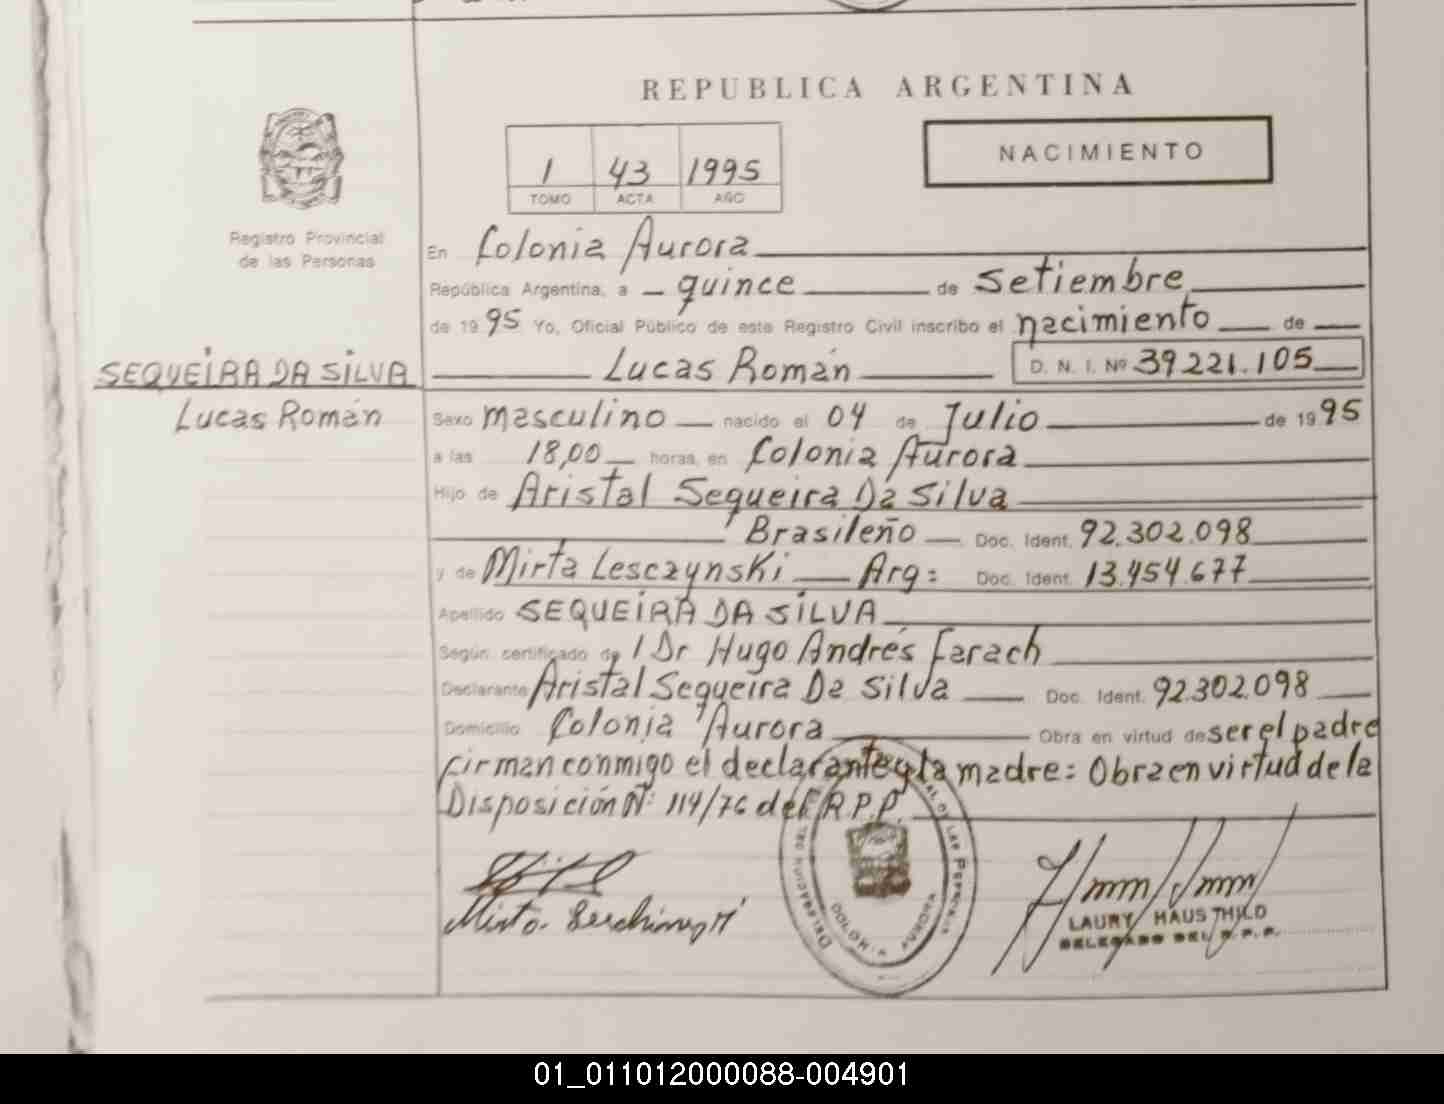 REPUBLICA ARGENTINA
1 43 1995
TOMO ACTA AÑO
NACIMIENTO
Registro Provincial
de las Personas
SEQUEIRA DA SILVA
Lucas Román
En Colonia Aurora
República Argentina, a quince de setiembre
de 1995 Yo, Oficial Público de este Registro Civil inscribo el nacimiento de
Lucas Román D. N. I. Nº 39221.105
Sexo masculino nacido el 04 de Julio de 1995
a las 18,00 horas, en Colonia Aurora
Hijo de Aristal Sequeira Da Silva
Brasileño Doc. Ident. 92.302.098
y de Mirta Lesczynski Arg: Doc. Ident. 13.454.677
Apellido SEQUEIRA DA SILVA
Según certificado de / Dr Hugo Andrés Farach
Declarante Aristal Sequeira Da Silva Doc. Ident. 92.302.098
Domicilio Colonia Aurora Obra en virtud de ser el padre
firman conmigo el declarante y la madre: Obra en virtud de la
Disposición Nº 114/76 del R.P.P.
LAURY HAUSTHILD
DELEGADO DEL R.P.P.
01_011012000088-004901